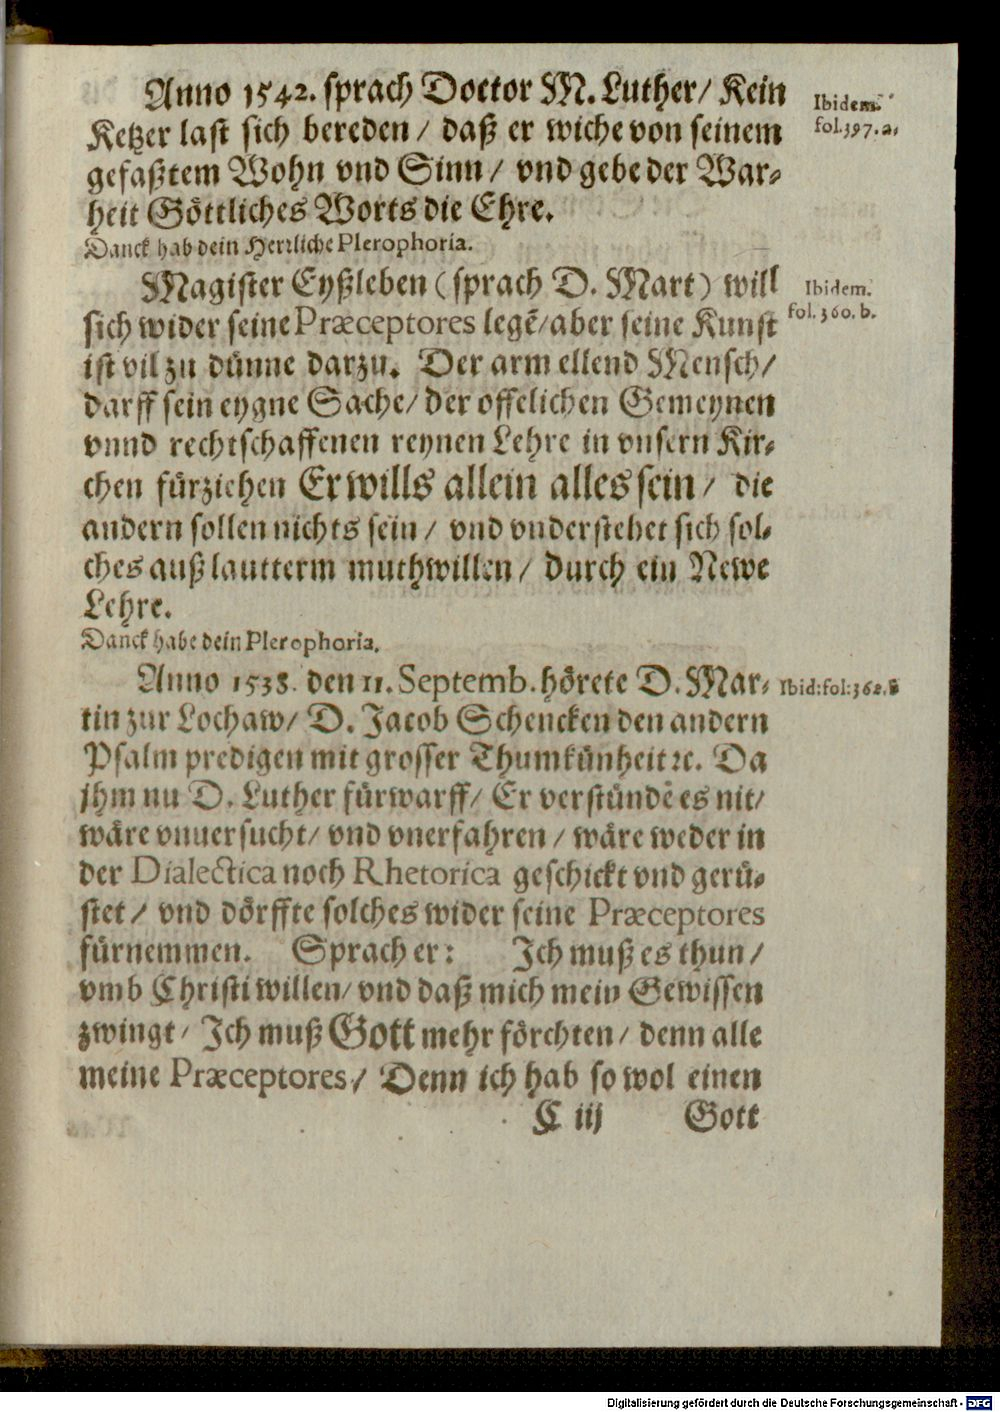 Anno 1542. sprach Doctor M. Luther/ Kein
Ketzer last sich bereden/ daß er wiche von seinem
gefaßtem Wohn vnd Sinn/ vnd gebe der War-
heit Göttliches Worts die Ehre.
Ibidem.
fol.397.a.
Danck hab dein Herrliche Plerophoria.
Magister Eyßleben (sprach D. Mart) will
sich wider seine Præceptores legē/aber seine Kunst
ist vil zu dünne darzu. Der arm ellend Mensch/
darff sein eygne Sache/ der offelichen Gemeynen
vnnd rechtschaffenen reynen Lehre in vnsern Kir-
chen fürziehen Er wills allein alles sein/ die
andern sollen nichts sein/ vnd vnderstehet sich sol-
ches auß lautterm muthwillen/ durch ein Newe
Lehre.
Ibidem.
fol. 360. b.
Danck habe dein Plerophoria.
Anno 1538. den 11. Septemb. hörete D. Mar-
tin zur Lochaw/ D. Jacob Schencken den andern
Psalm predigen mit grosser Thumkünheit ꝛc. Da
jhm nu D. Luther fürwarff/ Er verstündē es nit/
wäre vnuersucht/ vnd vnerfahren/ wäre weder in
der Dialectica noch Rhetorica geschickt vnd gerü-
stet/ vnd dörffte solches wider seine Præceptores
fürnemmen. Sprach er: Ich muß es thun/
vmb Christi willen/ vnd daß mich mein Gewissen
zwingt/ Ich muß Gott mehr förchten/ denn alle
meine Præceptores/ Denn ich hab so wol einen
Ibid:fol:362.
C iij Gott
Digitalisierung gefördert durch die Deutsche Forschungsgemeinschaft - DFG